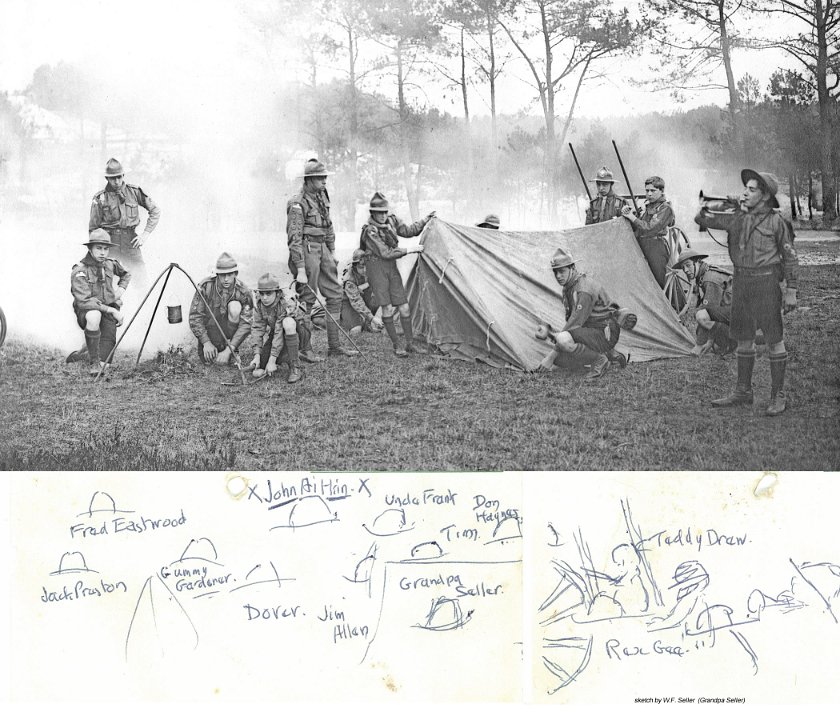 X John Aitkin. X
Fred Eastwood
Uncle Frank
Don
Haynes
Tim.
Teddy Drew.
Jack Preston
Gummy
Gardener.
Dover.
Jim
Allen
Grandpa
Seller.
Rex Gee!!
sketch by W.F. Seller (Grandpa Seller)